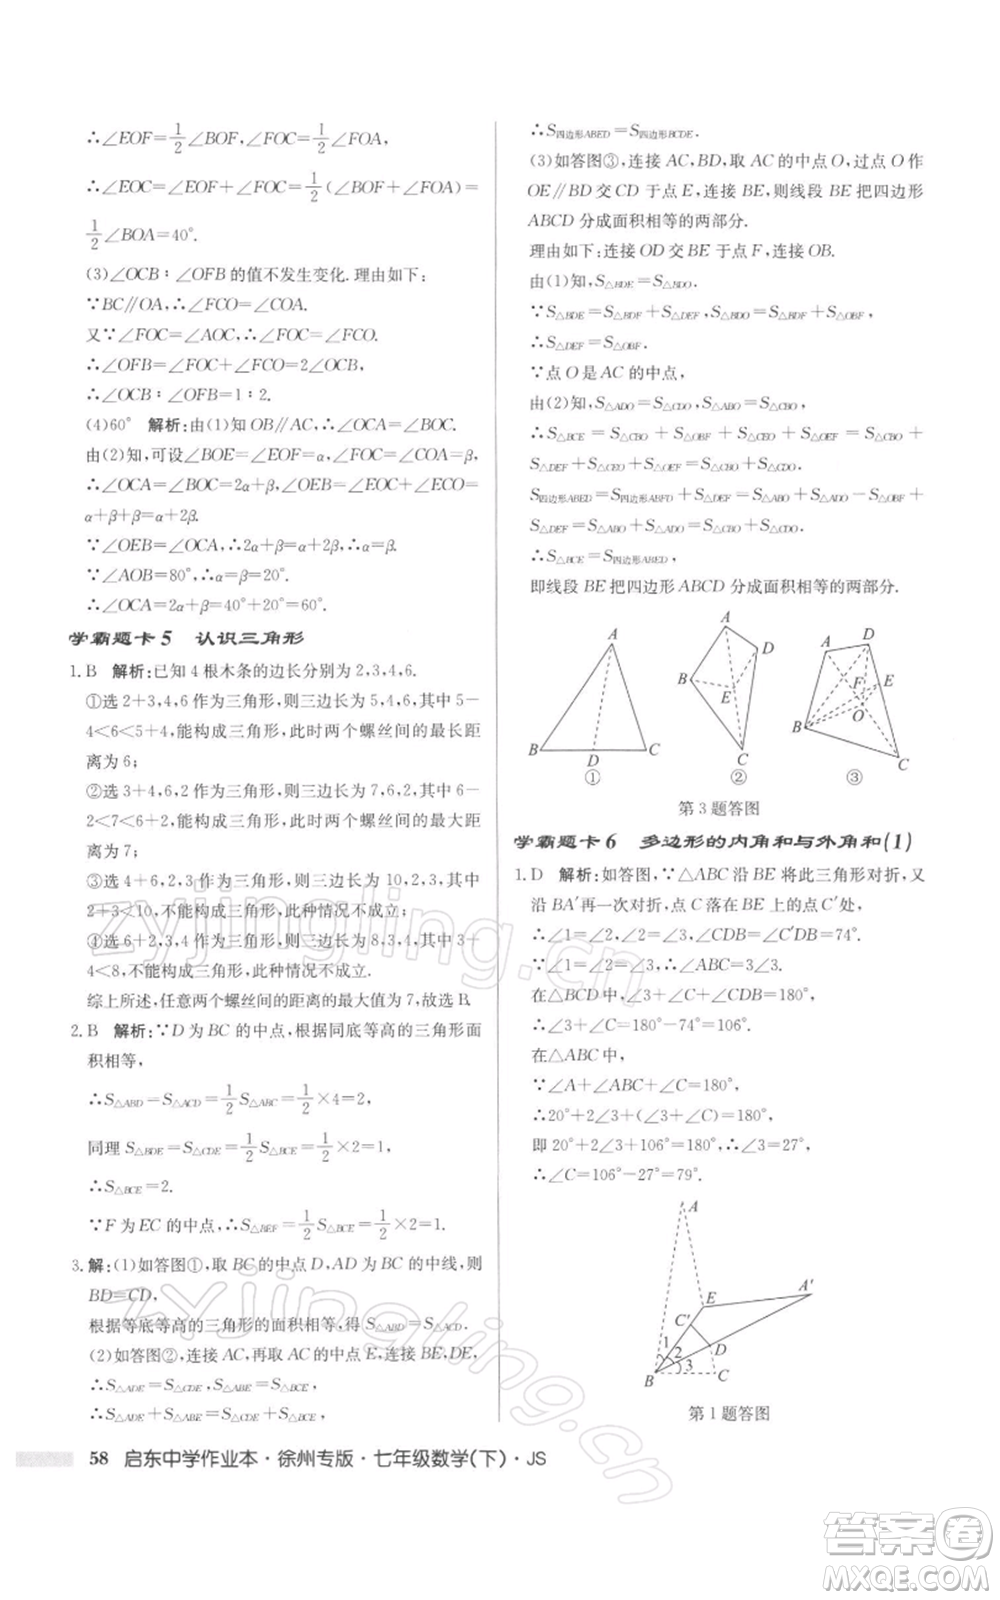 ∴∠EOF=1/2∠BOF,∠FOC=1/2∠FOA,
∴∠EOC=∠EOF+∠FOC=1/2(∠BOF+∠FOA)=
1/2∠BOA=40°.
(3)∠OCB∶∠OFB的值不发生变化.理由如下:
∵BC∥OA,∴∠FCO=∠COA.
又∵∠FOC=∠AOC,∴∠FOC=∠FCO,
∴∠OFB=∠FOC+∠FCO=2∠OCB,
∴∠OCB∶∠OFB=1∶2.
(4)60° 解析:由(1)知OB∥AC,∴∠OCA=∠BOC.
由(2)知,可设∠BOE=∠EOF=α,∠FOC=∠COA=β,
∴∠OCA=∠BOC=2α+β,∠OEB=∠EOC+∠ECO=
α+β+β=α+2β.
∵∠OEB=∠OCA,∴2α+β=α+2β,∴α=β.
∵∠AOB=80°,∴α=β=20°.
∴∠OCA=2α+β=40°+20°=60°.
学霸题卡5 认识三角形
1.B 解析:已知4根木条的边长分别为2,3,4,6.
①选2+3,4,6作为三角形,则三边长为5,4,6,其中5-
4<6<5+4,能构成三角形,此时两个螺丝间的最长距
离为6;
②选3+4,6,2作为三角形,则三边长为7,6,2,其中6-
2<7<6+2,能构成三角形,此时两个螺丝间的最大距
离为7;
③选4+6,2,3作为三角形,则三边长为10,2,3,其中
2+3<10,不能构成三角形,此种情况不成立;
④选6+2,3,4作为三角形,则三边长为8,3,4,其中3+
4<8,不能构成三角形,此种情况不成立.
综上所述,任意两个螺丝间的距离的最大值为7,故选B.
2.B 解析:∵D为BC的中点,根据同底等高的三角形面
积相等,
∴S△ABD=S△ACD=1/2S△ABC=1/2×4=2,
同理S△BDE=S△CDE=1/2S△BCE=1/2×2=1.
∴S△BCE=2.
∵F为EC的中点,∴S△BEF=1/2S△BCE=1/2×2=1.
3.解:(1)如答图①,取BC的中点D,AD为BC的中线,则
BD=CD,
根据等底等高的三角形的面积相等,得S△ABD=S△ACD.
(2)如答图②,连接AC,再取AC的中点E,连接BE,DE,
∴S△ADE=S△CDE,S△ABE=S△BCE,
∴S△ADE+S△ABE=S△CDE+S△BCE,
∴S四边形ABED=S四边形BCDE.
(3)如答图③,连接AC,BD,取AC的中点O,过点O作
OE∥BD交CD于点E,连接BE,则线段BE把四边形
ABCD分成面积相等的两部分.
理由如下:连接OD交BE于点F,连接OB.
由(1)知,S△BDE=S△BDO.
∵S△BDE=S△BDF+S△DEF,S△BDO=S△BDF+S△OBF,
∴S△DEF=S△OBF.
∵点O是AC的中点,
由(2)知,S△ADO=S△CDO,S△ABO=S△CBO,
∴S△BCE=S△CBO+S△OBF+S△CEO+S△OEF=S△CBO+
S△DEF+S△CEO+S△OEF=S△CBO+S△CDO.
S四边形ABED=S四边形ABFD+S△DEF=S△ABO+S△ADO-S△OBF+
S△DEF=S△ABO+S△ADO=S△CBO+S△CDO,
∴S△BCE=S四边形ABED,
即线段BE把四边形ABCD分成面积相等的两部分.
A
B D C
①
A
D
B
E
C
②
A D
F E
O
B
C
③
第3题答图
学霸题卡6 多边形的内角和与外角和(1)
1.D 解析:如答图,∵△ABC沿BE将此三角形对折,又
沿BA′再一次对折,点C落在BE上的点C′处,
∴∠1=∠2,∠2=∠3,∠CDB=∠C′DB=74°.
∴∠1=∠2=∠3,∴∠ABC=3∠3.
在△BCD中,∵∠3+∠C+∠CDB=180°,
∴∠3+∠C=180°-74°=106°.
在△ABC中,
∵∠A+∠ABC+∠C=180°,
∴20°+2∠3+(∠3+∠C)=180°,
即20°+2∠3+106°=180°,∴∠3=27°,
∴∠C=106°-27°=79°.
A
E A′
C′
D
1
2
3
B C
第1题答图
58 启东中学作业本·徐州专版·七年级数学(下)·JS
zyjingling.cn
zyjingling.cn
答案卷
MXQE.COM